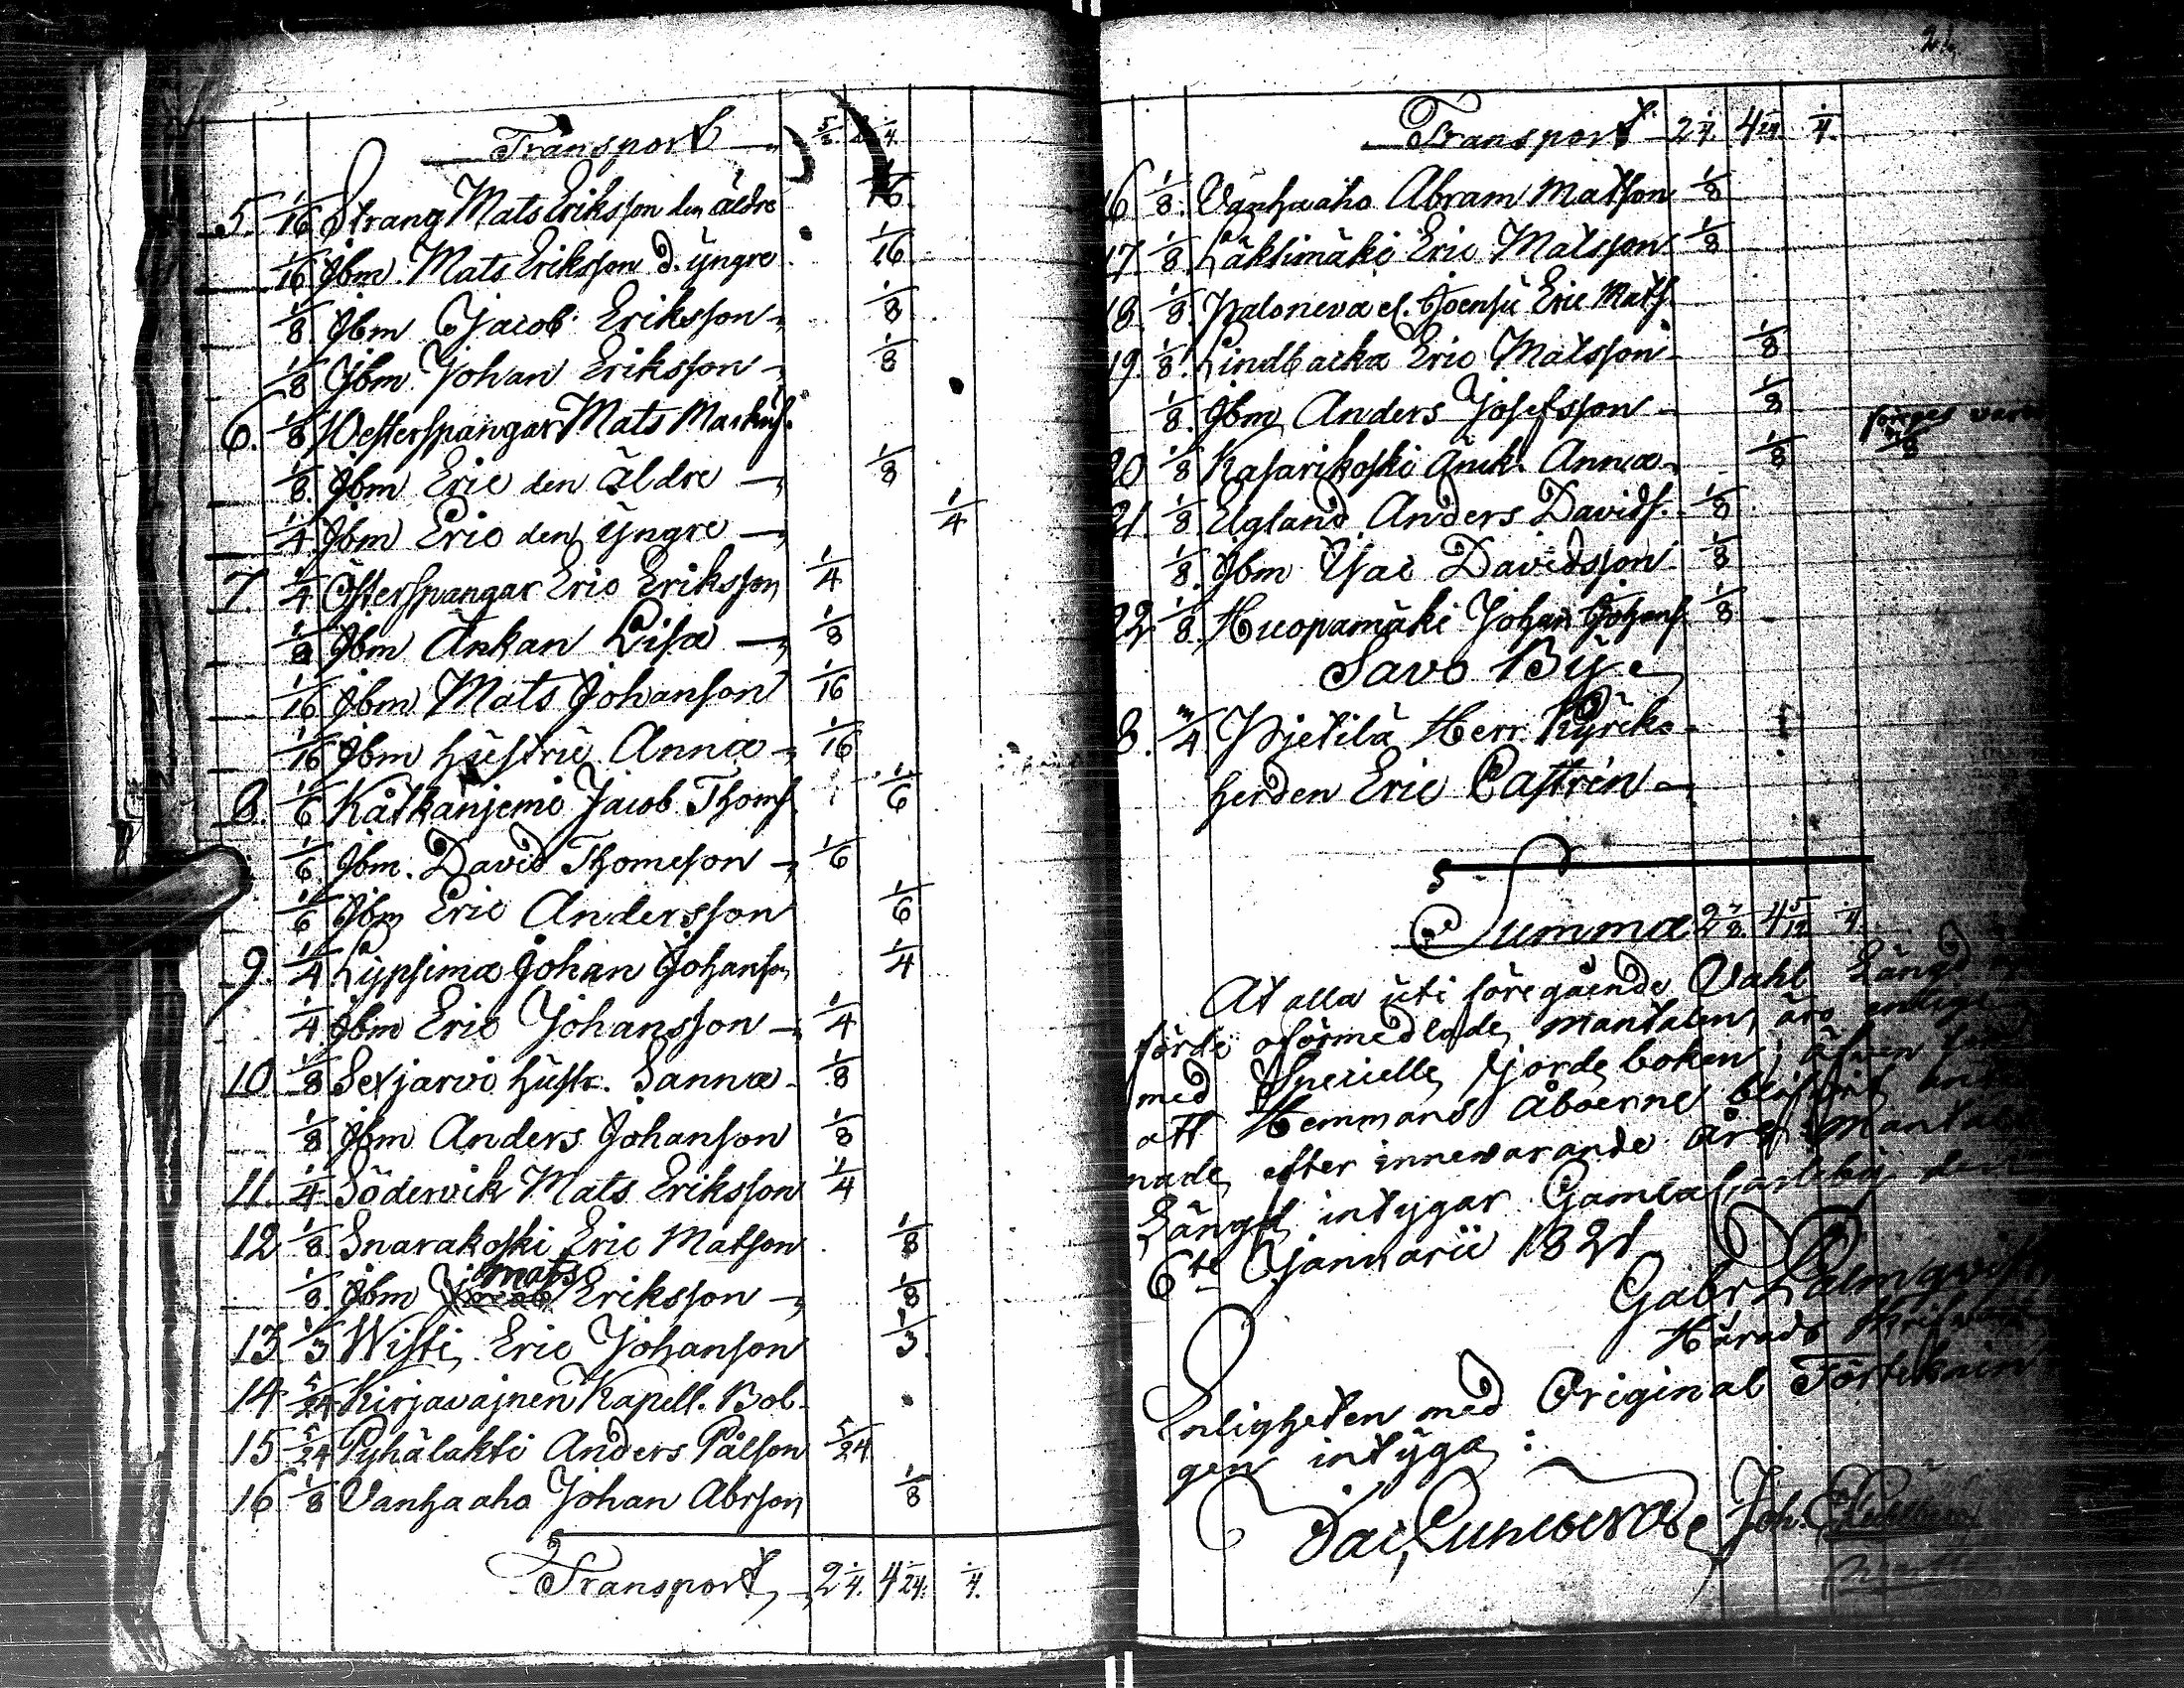 Transport
5. 1/16 Strang Mats Eriksson den äldre 1/16
1/16 Ibm Mats Eriksson d. yngre 1/16
1/8 Ibm Jacob Eriksson 1/8
1/8 Ibm Johan Eriksson 1/8
6. 1/8 Westerspangar Mats Markus.
1/8 Ibm Eric den äldre 1/8
1/4 Ibm Eric den yngre 1/4
7. 1/4 Österspangar Eric Eriksson 1/4
1/8 Ibm Änkan Lisa 1/8
1/16 Ibm Mats Johanson 1/16
1/16 Ibm hustru Anna 1/16
8. 1/6 Kåtkänjemi Jacob Thoms. 1/6
1/6 Ibm David Thomeson 1/6
1/6 Ibm Eric Andersson 1/6
9. 1/4 Lypsima Johan Johanson 1/4
1/4 Ibm Eric Johansson 1/4
10 1/8 Sexjarvi hustr. Sanna 1/8
1/8 Ibm Anders Johanson 1/8
11. 1/4 Södervik Mats Eriksson 1/4
12 1/8 Snarakoski Eric Matson 1/8
1/8 Ibm Mats Eriksson 1/8
13. 1/3 Wisti Eric Johanson 1/3
14 5/24 Kirjavajnen Kapell. Bol.
15 5/24 Pyhälakti Anders Pålson 5/24
16 1/8 Vanhaaho Johan Abrson 1/8
Transport 2 1/4. 4 1/24. 1/4.
Transport 2 1/4. 4 1/24. 1/4.
16 1/8. Vanhaaho Abram Matson 1/8
17. 1/8. Läktimäki Eric Matsson 1/8
18. 1/8. Paloneva el. Joensu Eric Mats.
19. 1/8. Lindbacka Eric Matsson 1/8
1/8. Ibm Anders Josefsson 1/8
20 1/8 Kasarikoski Änk. Anna 1/8
21. 1/8 Elgland Anders Davids. 1/8
1/8. Ibm Isac Davidsson 1/8
22 1/8. Huopamäki Johan Johans. 1/8
Savo By
8. 3/4 Pjetilä Herr Kyrcko-
herden Eric Castrén
Summa 2 7/8. 4 5/12. 1/4.
At alla uti föregående Vahl Längd
förde oförmedlade mantalen, äro enlige
med Specielle Jorde boken; äfven som
att Hemmans Åboerne blifvit
nade, efter innevarande års Mantals
Längd, intygar Gamla Carleby den
6te Januarii 1821
Gabr Palmqvist
Härads Skrifvare
Enligheten med Original Förtecknin
gen intyga:
Joh.